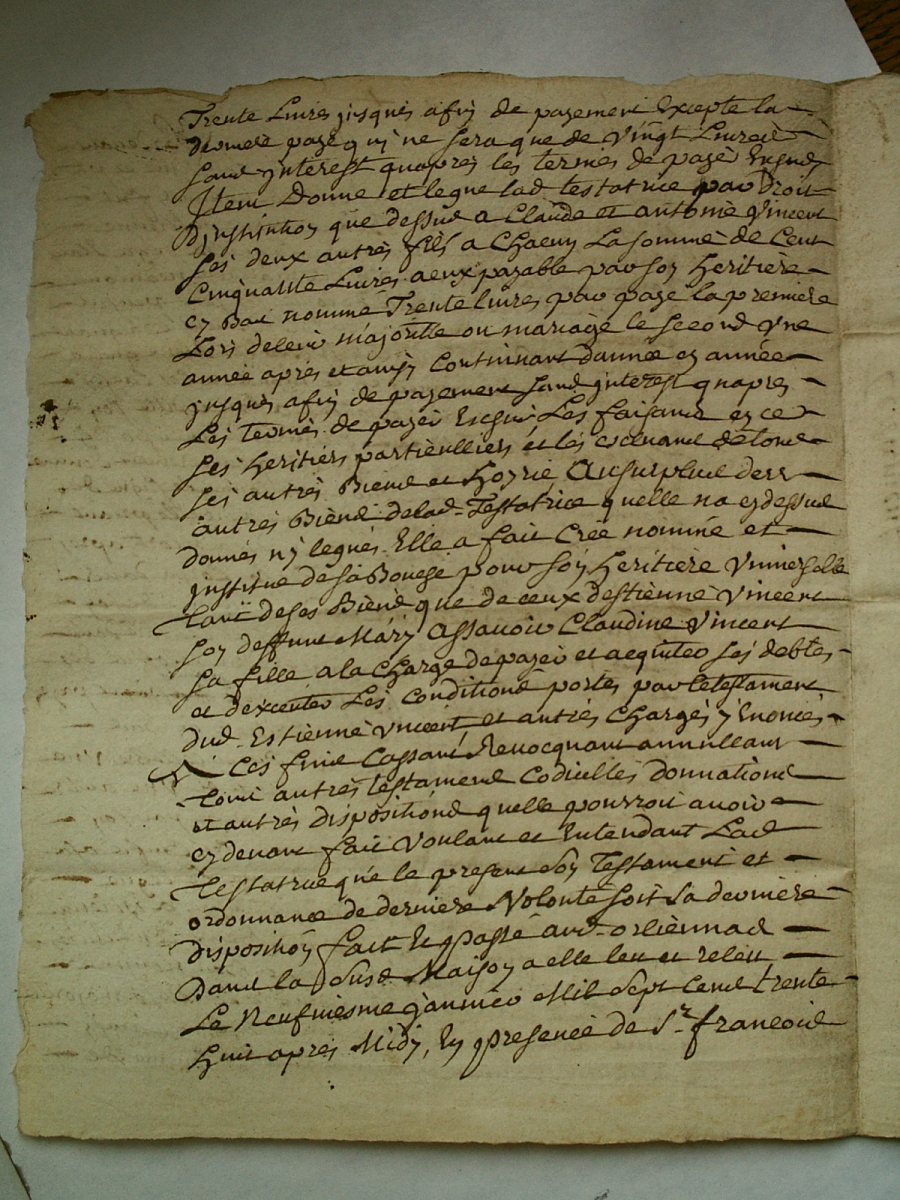 Trente Livres jusques a fin de payement Excepte la
derniere paye qui ne sera que de Vingt Livres
sans interest quapres les termes de paye Escheus
Item Donne et legue lad testatrice par Droit
D'institution que dessus a Claude et antoine Vincent
ses deux autres fils a Chacun La somme de Cent
Cinquante Livres a eux payable par son heritiere
cy bas nommé Trente livres par paye la premiere
Lors de leur majorité ou mariage le second Une
année apres et ainsy Continuant dannée en année
jusques a fin de payement sans interest quapres
Les termes de payer Escheus Les faisans en ce
ses heritiers particulliers et les excluant de tous
ses autres Biens et Hoyrie, Au surplus des
autres Biens de lad. Testatrice quelle na cy dessus
donnés ny legués Elle a fait Créé nommé et
institue de sa Bouche pour son Heritiere Universelle
Tant de ses Biens que de ceux destienne Vincent
son deffunt Mary Assavoir Claudine Vincent
sa fille a la Charge de payer et acquiter ses debtes
et dexecuter Les Conditions portes par le testament
dud. Estienne Vincent, et autres Charges y Enoncés
A Ces fins Cassant Revocquant annullant
tous autres testamens Codicilles donnations
et autres dispositions quelle pourroit avoir
cy devant fait Voulant et Entendant Lad
Testatrice que le present son Testament et
ordonnance de derniere Volonté soit sa derniere
disposition fait et passé aud. orliennas
Dans la susd Maison a elle leu et releu
Le Neufviesme janvier Mil Sept Cens trente
huit apres Midy, En presence de Sr. francois